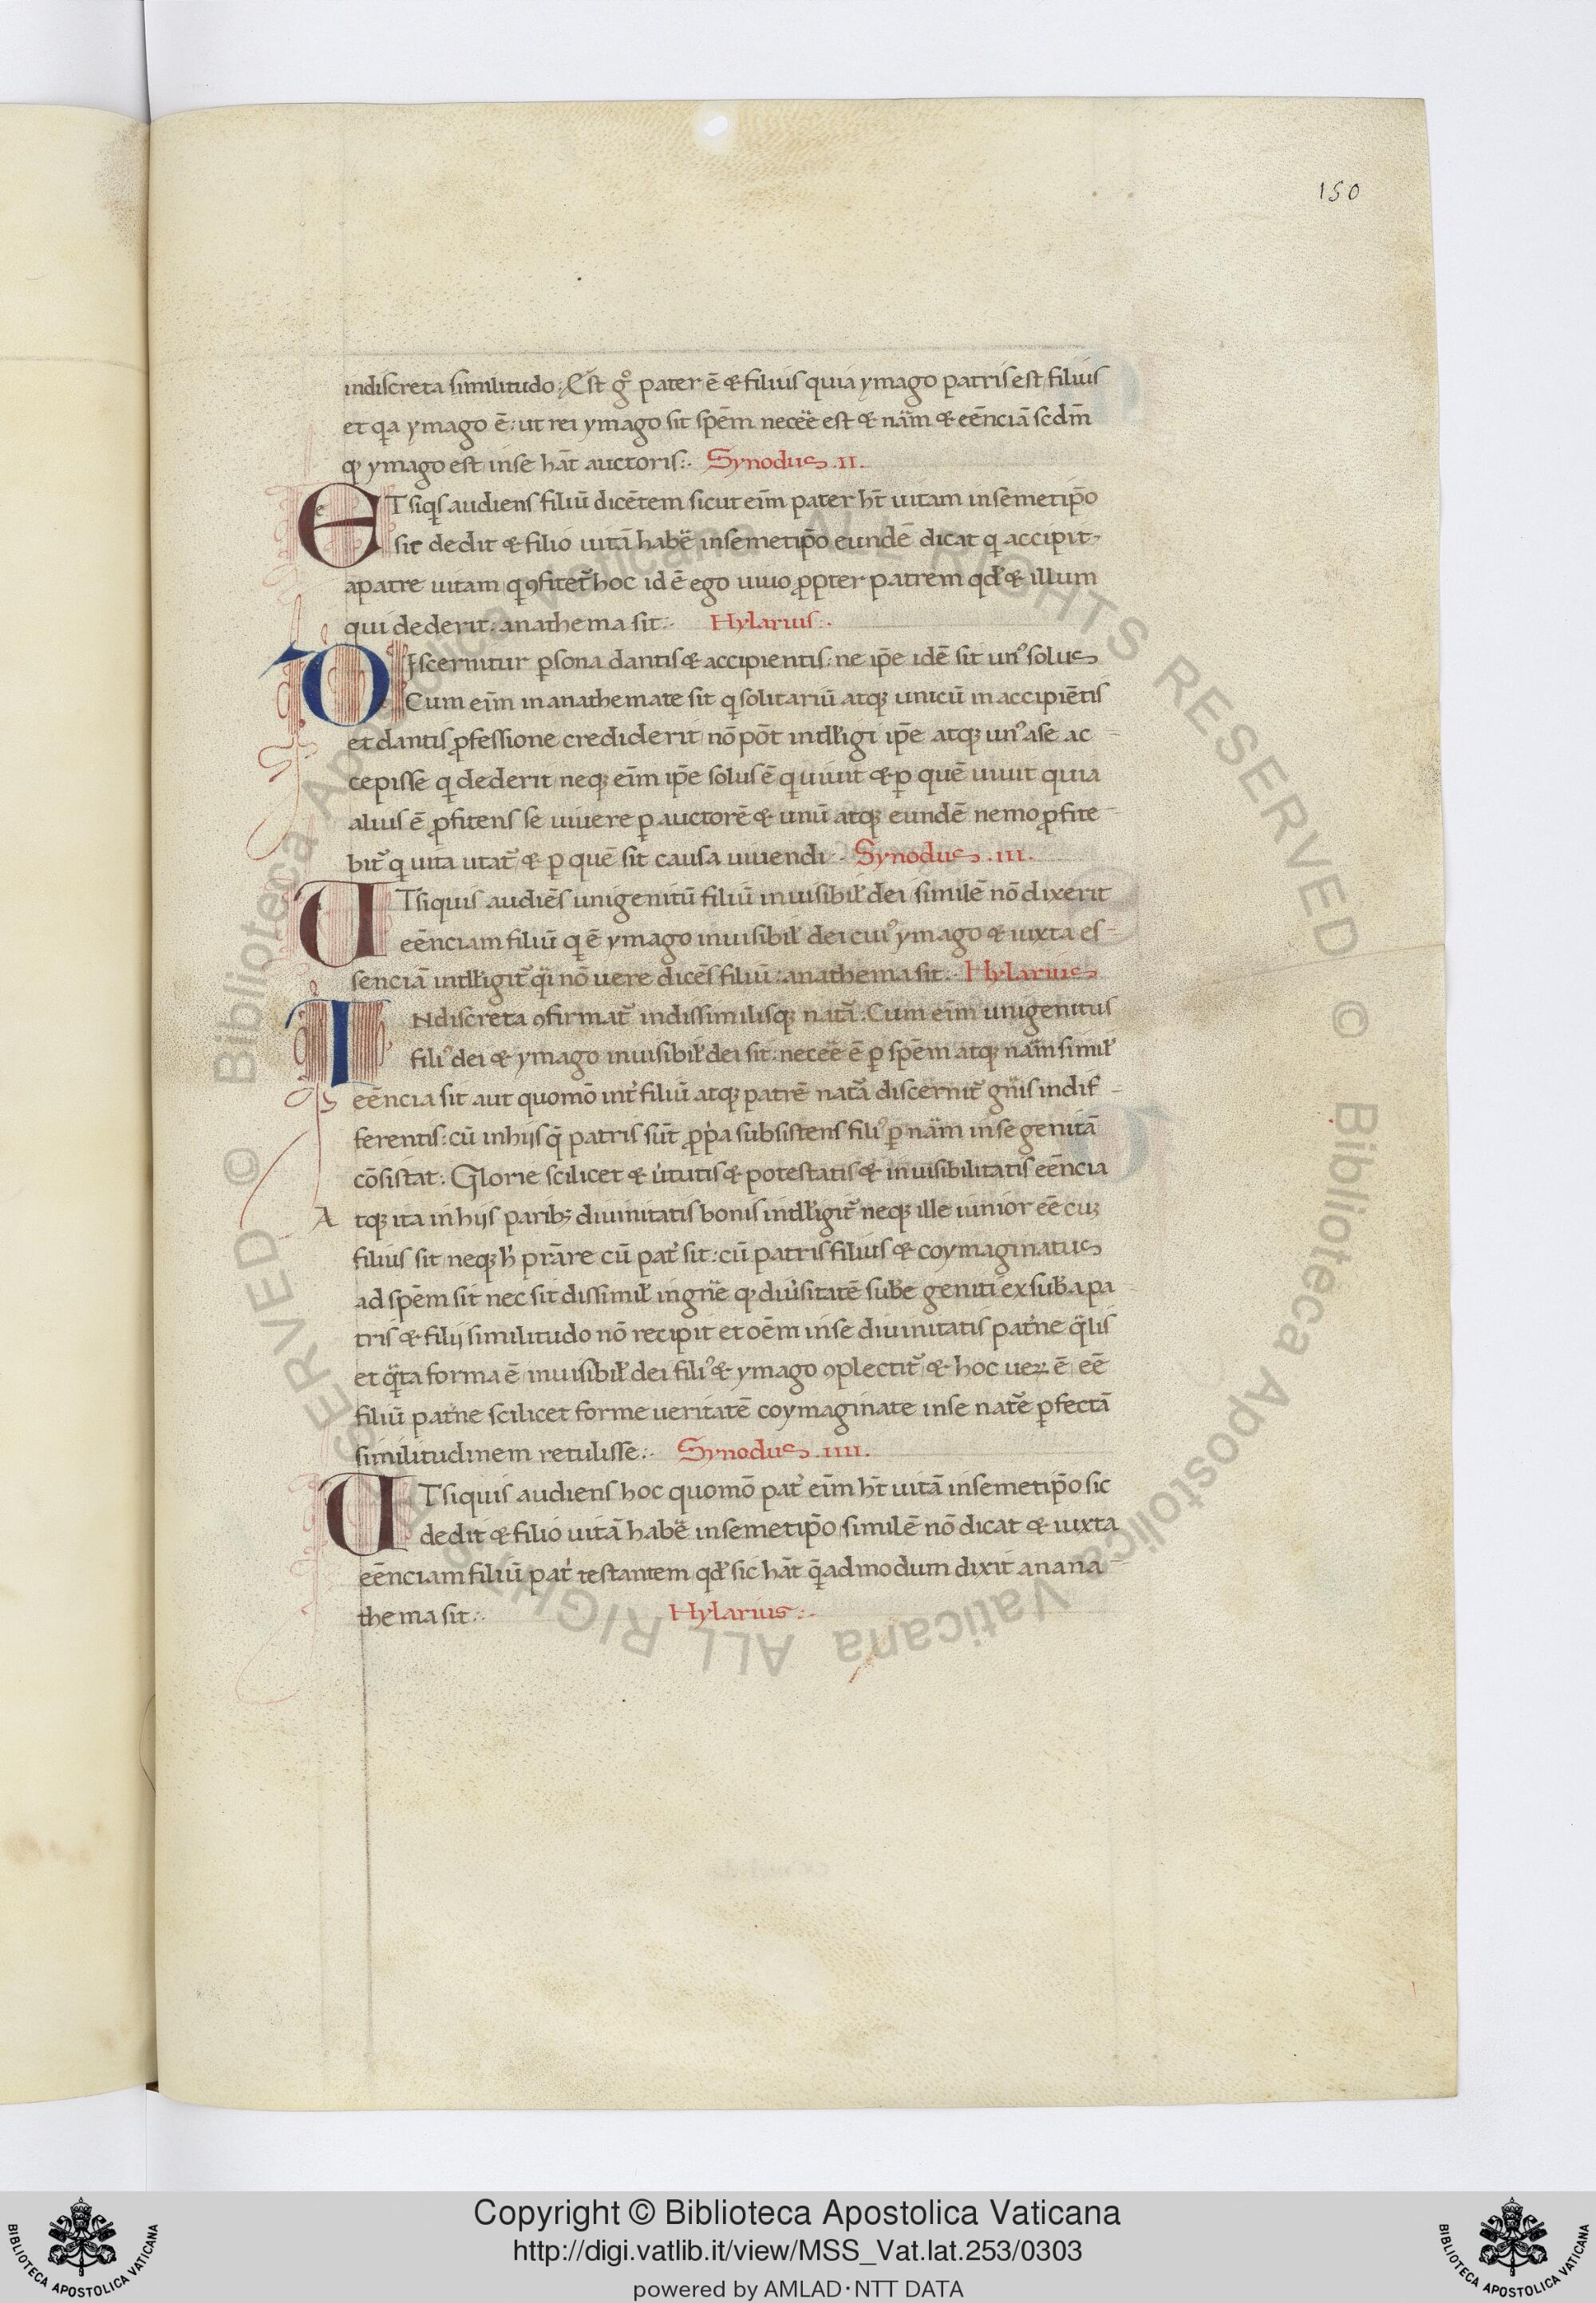 150
indiscreta similitudo: Est gº pater ē & filius quia ymago patris est filius
et qa ymago ē: ut rei ymago sit spēm necēē est & nām & eēnciā scdm̄
qͥ ymago est inse hāt auctoris:· Synodus .II.
ET siqs audiens filiū dicētem sicut eīm pater ht̄ uitam insemetip̄o
sic dedit & filio uitā habē insemetip̄o eundē dicat q accipit
apatre uitam q ꝯfitet᷑ hoc id ē ego uiuo ꝓpter patrem qd' & illum
qui dederit: anathema sit:· Hylarius:·
DIscernitur ꝑsona dantis & accipientis: ne ip̄e idē sit unꝰ solus
Cum eīm in anathemate sit q solitariū atqꝫ unicū in accipiētis
et dantis ꝓfessione crediderit nō pōt intłłigi ip̄e atqꝫ unꝰ ase ac-
cepisse q dederit neqꝫ eīm ip̄e solus ē q uiuit & ꝑ quē uiuit quia
alius ē ꝓfitens se uiuere ꝑ auctorē & unū atqꝫ eundē nemo ꝓfite-
bit᷑ q uita utat᷑ & ꝑ quē sit causa uiuendi:· Synodus .III.
UTsiquis audiēs unigenitū filiū inuisibił dei similē nō dixerit
eēnciam filiū q ē ymago inuisibił dei cuiꝰ ymago & iuxta es-
senciā intłłigit᷑ qͣi nō uere dicēs filiū: anathema sit:· Hylarius
INdiscreta ꝯfirmat᷑ indissimilisqꝫ nat᷑a: Cum eīm unigenitus
filiꝰ dei & ymago inuisibił dei sit: necēē ē ꝑ spēm atqꝫ nām simił
eēncia sit aut quomō int᷑ filiū atqꝫ patrē nat᷑ā discernit᷑ gn̄is indif-
ferentis: cū inhijs q̄ patris sūt ꝓpͥa subsistens filiꝰ ꝑ nām inse genitā
cōsistat: Glorie scilicet & u͛tutis & potestatis & inuisibilitatis eēncia
Atqꝫ ita inhijs paribꝫ diuinitatis bonis intłłigit᷑ neqꝫ ille iunior eē cuꝫ
filius sit neqꝫ h̓ prāre cū pat᷑ sit: cū patris filius & coymaginatus
ad spēm sit nec sit dissimił ingn̄e qͥ diu͛sitatē sub̄e geniti ex sub̄a pa
tris & filij similitudo nō recipit et oēm inse diuinitatis pat᷑ne qͣlis
et qͣta forma ē inuisibił dei filiꝰ & ymago ꝯplectit᷑ & hoc ueꝝ ē eē
filiū pat᷑ne scilicet forme ueritatē coymaginate inse nat᷑e ꝑfectā
similitudinem retulisse:· Synodus .IIII.
UTsiquis audiens hoc quomō pat᷑ eīm ht̄ uitā insemetip̄o sic
dedit & filio uitā habē insemetip̄o similē nō dicat & iuxta
eēnciam filiū pat᷑ testantem qd' sic hāt q̄admodum dixit anana-
thema sit:· Hylarius:·
Copyright © Biblioteca Apostolica Vaticana
http://digi.vatlib.it/view/MSS_Vat.lat.253/0303
powered by AMLAD·NTT DATA